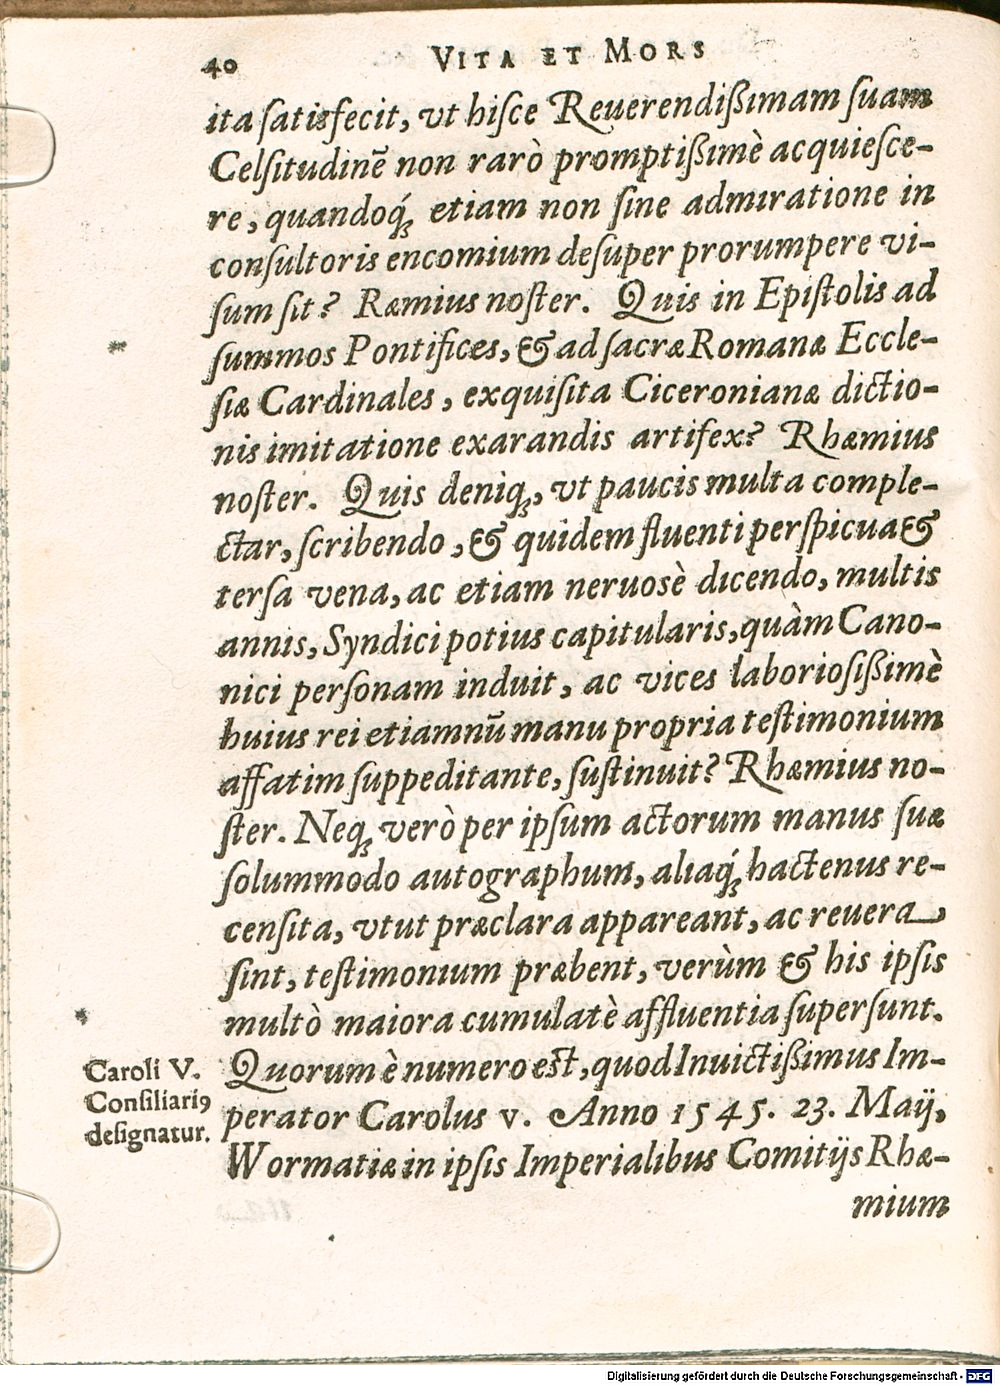 40 VITA ET MORS
ita ſatisfecit, vt hiſce Reuerendißimam ſuam
Celſitudinẽ non rarò promptißimè acquieſce-
re, quandoq́ꝫ etiam non ſine admiratione in
conſultoris encomium deſuper prorumpere vi-
ſum ſit? Ræmius noſter. Quis in Epiſtolis ad
ſummos Pontifices, & ad ſacræ Romanæ Eccle-
ſiæ Cardinales, exquiſita Ciceronianæ dictio-
nis imitatione exarandis artifex? Rhæmius
noſter. Quis deniqꝫ, vt paucis multa comple-
ctar, ſcribendo, & quidem fluenti perſpicua &
terſa vena, ac etiam neruosè dicendo, multis
annis, Syndici potius capitularis, quàm Cano-
nici perſonam induit, ac vices laborioſißimè
huius rei etiamnũ manu propria teſtimonium
affatim ſuppeditante, ſuſtinuit? Rhæmius no-
ſter. Neqꝫ verò per ipſum actorum manus ſuæ
ſolummodo autographum, aliaq́ꝫ hactenus re-
cenſita, vtut præclara appareant, ac reuera
ſint, teſtimonium præbent, verùm & his ipſis
multò maiora cumulatè affluentia ſuperſunt.
Quorum è numero eſt, quod Inuictißimus Im-
perator Carolus V. Anno 1545. 23. Maij,
Wormatiæ in ipſis Imperialibus Comitijs Rhæ-
mium
Caroli V.
Conſiliariꝯ
deſignatur.
Digitalisierung gefördert durch die Deutsche Forschungsgemeinschaft - DFG